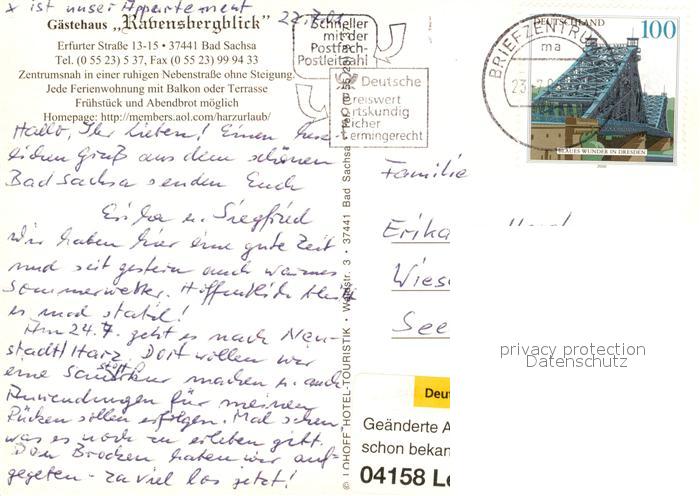 x ist unser Appartement 22.7.01
Gästehaus „Ravensbergblick"
Erfurter Straße 13-15 • 37441 Bad Sachsa
Tel. (0 55 23) 5 37, Fax (0 55 23) 99 94 33
Zentrumsnah in einer ruhigen Nebenstraße ohne Steigung.
Jede Ferienwohnung mit Balkon oder Terrasse
Frühstück und Abendbrot möglich
Homepage: http://members.aol.com/harzurlaub/
Hallo, Ihr Lieben! Einen herz-
lichen Gruß aus dem schönen
Bad Sachsa senden Euch
Erika u. Siegfried
Wir haben hier eine gute Zeit
und seit gestern auch warmes
Sommerwetter. Hoffentlich bleibt
es mal stabil!
Am 24.7. geht es nach Neu-
stadt/Harz. Dort wollen wir
eine machen u. auch
Anwendungen für meinen
Rücken sollen erfolgen. Mal sehen,
was es noch zu erleben gibt.
Den Brocken haben wir auf-
gegeben - zu viel los jetzt!
Schneller
mit der
Postfach-
Postleitzahl
Deutsche
Preiswert
Ortskundig
Sicher
Termingerecht
© LOHOFF HOTEL-TOURISTIK • Waldstr. 3 • 37441 Bad Sachsa
BRIEFZENTRUM
ma
DEUTSCHLAND 100
BLAUES WUNDER IN DRESDEN
2000
Familie
Erika
Wies
See
privacy protection
Datenschutz
Deut
Geänderte A
schon bekan
04158 Le